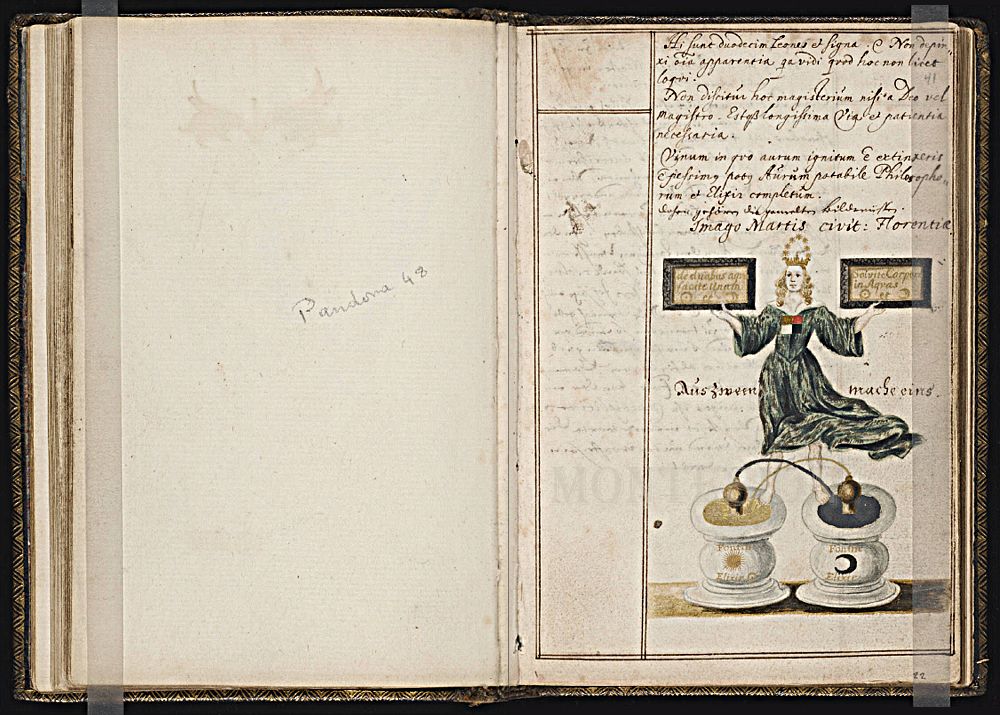 Pandora 48
Hi sunt duodecim Leones et signa. Non depin
xi oia apparentia qa vidi quod hoc non licet
loqvi.
41
Non discitur hoc magisterium nisi a Deo vel
magistro. longissima Via et patientia
necessaria.
Vinum in qvo aurum ignitum extinxeris
Aurum potabile Philosopho„
rum et Elixir completum.
Imago Martis civit: Florentiæ
de duabus aqu
facite unam
et
Solvite Corpora
in Aquas
et
Aus zween mache eins.
MONT
Fontin
Elixir
Fontin
Elixir
22